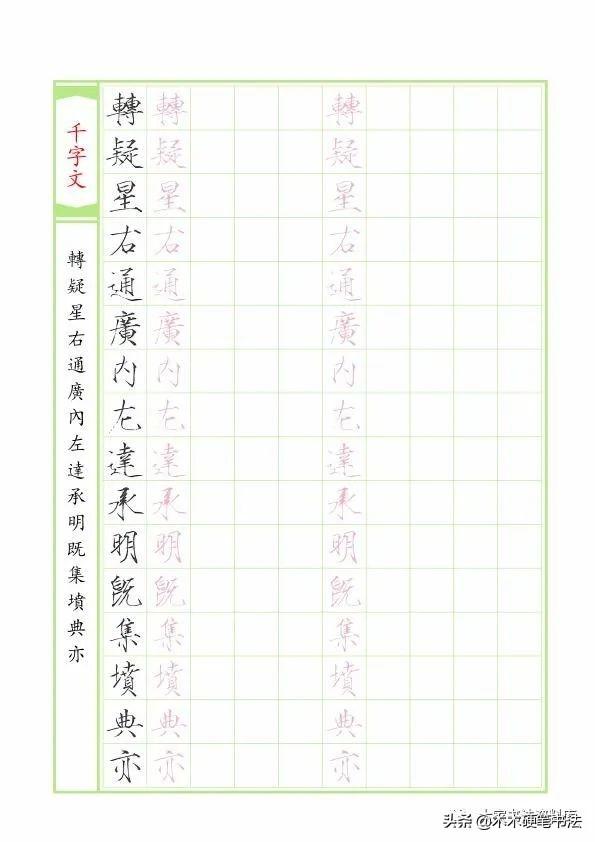 千字文
轉疑星右通廣內左達承明既集墳典亦
轉疑星右通廣內左達承明既集墳典亦
轉疑星右通廣內左達承明既集墳典亦
轉疑星右通廣內左達承明既集墳典亦
头条 @木木硬笔书法